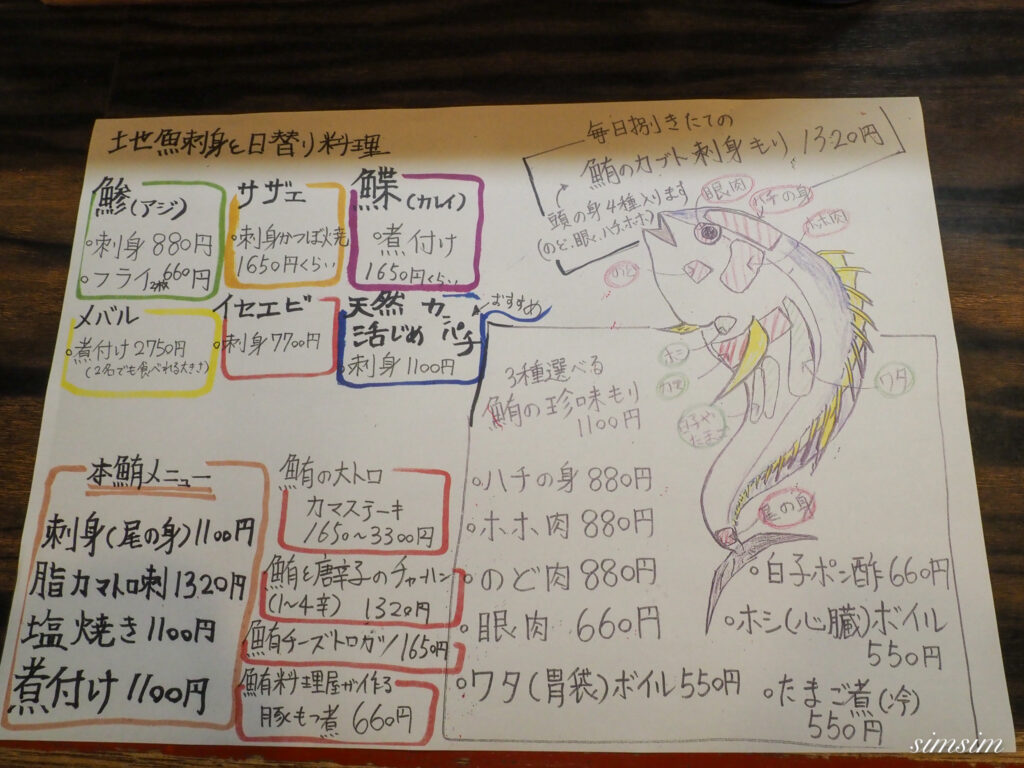 地魚刺身と日替り料理
鯵(アジ)
◦刺身 880円
◦フライ2枚660円
サザエ
◦刺身かつぼ焼
1650円くらい
鰈(カレイ)
◦煮付け
1650円くらい
メバル
◦煮付け2750円
(2名でも食べれる大きさ)
イセエビ
◦刺身7700円
天然 カンパチ
活じめ
◦刺身1100円
おすすめ
毎日捌きたての
鮪のカブト刺身もり 1320円
頭の身4種入ります
(のど、眼、ハチ、ホホ)
眼肉
ハチの身
ホホ肉
のど
ホシ
カマ
白子や
たまご
ワタ
尾の身
本鮪メニュー
刺身(尾の身)1100円
脂カマトロ刺1320円
塩焼き1100円
煮付け1100円
鮪の大トロ
カマステーキ
1650~3300円
鮪と唐辛子のチャーハン
(1~4辛) 1320円
鮪チーズトロカツ1650円
鮪料理屋が作る
豚もつ煮 660円
3種選べる
鮪の珍味もり
1100円
◦ハチの身 880円
◦ホホ肉 880円
◦のど肉 880円
◦眼肉 660円
◦ワタ(胃袋)ボイル550円
◦白子ポン酢660円
◦ホシ(心臓)ボイル
550円
◦たまご煮(冷)
550円
simsim